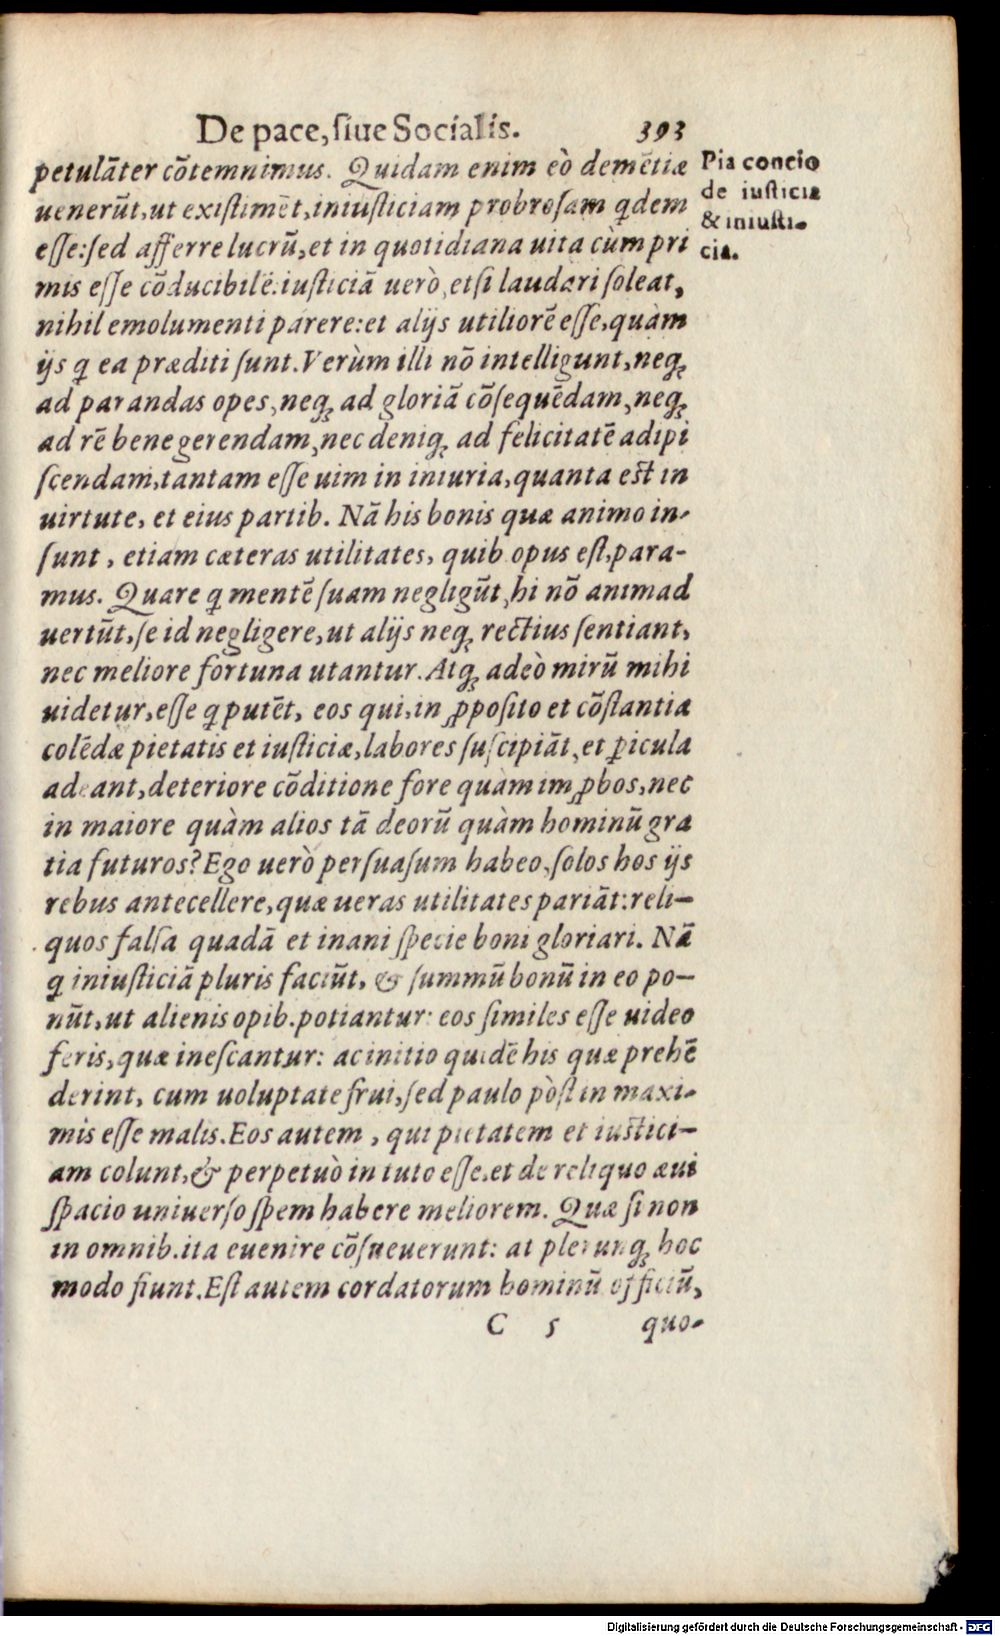 De pace, ſiue Socialis. 393
petulāter cōtemnimus. Quidam enim eò demētiæ
uenerūt, ut exiſtimēt, iniuſticiam probroſam q̇dem
eſſe: ſed afferre lucrū, et in quotidiana uita cùm pri
mis eſſe cōducibilē: iuſticiā uerò, etſi laudari ſoleat,
nihil emolumenti parere: et alijs utiliorē eſſe, quàm
ijs q̇ ea præditi ſunt. Verùm illi nō intelligunt, neq;
ad parandas opes, neq; ad gloriā cōſequēdam, neq;
ad rē bene gerendam, nec deniq; ad felicitatē adipi
ſcendam, tantam eſſe uim in iniuria, quanta eſt in
uirtute, et eius partib. Nā his bonis quæ animo in-
ſunt, etiam cæteras utilitates, quib. opus eſt, para-
mus. Quare q̇ mentē ſuam negligūt, hi nō animad
uertūt, ſe id negligere, ut alijs neq; rectius ſentiant,
nec meliore fortuna utantur. Atq; adeò mirū mihi
uidetur, eſſe q̇ putēt, eos qui, in ꝓpoſito et cōſtantia
colēdæ pietatis et iuſticiæ, labores ſuſcipiāt, et ꝑicula
adeant, deteriore cōditione fore quàm imꝓbos, nec
in maiore quàm alios tā deorū quàm hominū gra
tia futuros? Ego uerò perſuaſum habeo, ſolos hos ijs
rebus antecellere, quæ ueras utilitates pariāt: reli-
quos falſa quadā et inani ſpecie boni gloriari. Nā
q̇ iniuſticiā pluris faciūt, & ſummū bonū in eo po-
nūt, ut alienis opib. potiantur: eos ſimiles eſſe uideo
feris, quæ ineſcantur: ac initio quidē his quæ prehē
derint, cum uoluptate frui, ſed paulo pòſt in maxi-
mis eſſe malis. Eos autem, qui pietatem et iuſtici-
am colunt, & perpetuò in tuto eſſe, et de reliquo æui
ſpacio uniuerſo ſpem habere meliorem. Quæ ſi non
in omnib. ita euenire cōſueuerunt: at plerunq; hoc
modo fiunt. Eſt autem cordatorum hominū officiū,
C 5 quo-
Pia concio
de iuſticia
& iniuſti-
cia.
Digitalisierung gefördert durch die Deutsche Forschungsgemeinschaft - DFG